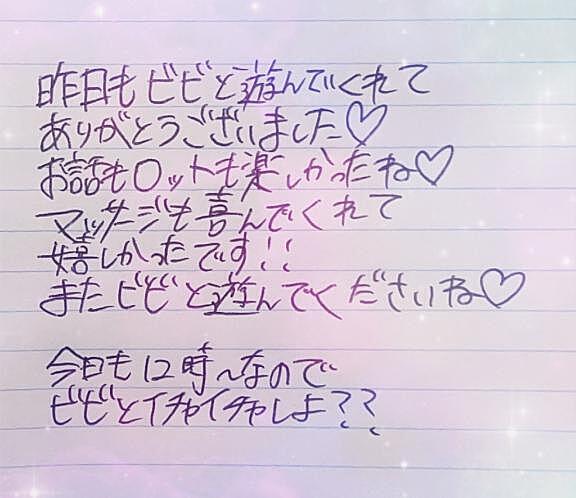 昨日もビビと遊んでくれて
ありがとうございました♡
お話も〇ットも楽しかったね♡
マッサージも喜んでくれて
嬉しかったです!!
またビビと遊んでくださいね♡
今日も12時〜なので
ビビとイチャイチャしよ??